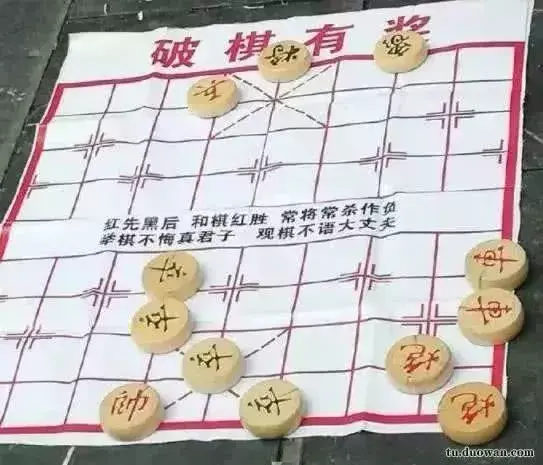 破棋有奖
将
兵
红先黑后 和棋红胜 常将常杀作负
举棋不悔真君子 观棋不语大丈夫
卒
車
卒
車
卒
炮
帅
卒
炮
tu.duowan.com